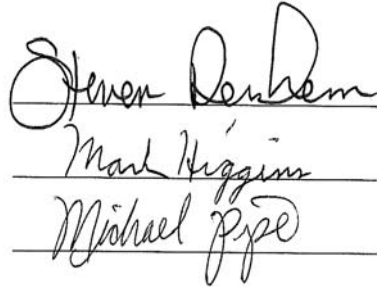 Steven Denham
Mark Higgins
Michael Pipe